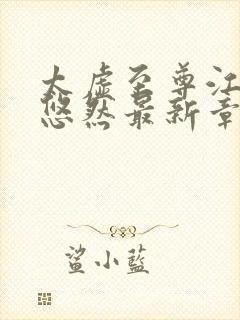 太虚至尊江
悠然最新章
鲨小蓝